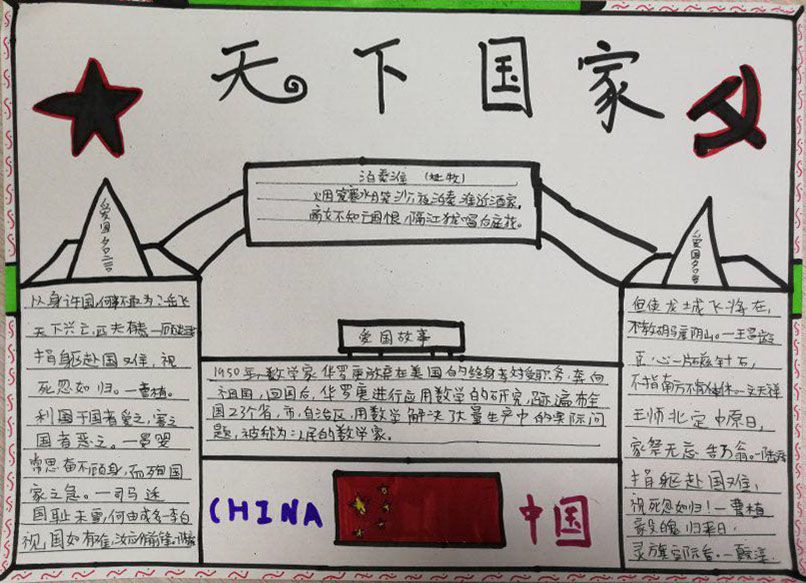 天下国家
泊秦淮 (杜牧)
烟笼寒水月笼沙,夜泊秦淮近酒家。
商女不知亡国恨,隔江犹唱后庭花。
爱国名言
以身许国,何事不敢为?岳飞
天下兴亡,匹夫有责—顾炎武
捐躯赴国又难,视
死忽如归。—曹植。
利国于国者爱之,害之
国者恶之。—晏婴
常思奋不顾身,而殉国
家之急。—司马迁
国耻未雪,何由成名-李白
视国如有难,汝应作前锋-陈毅
爱国故事
1950年,数学家华罗庚放弃在美国的终身教授职务,奔向
祖国,回国后,华罗庚进行应用数学的研究,足迹遍布全
国23个省、市、自治区,用数学解决了大量生产中的实际问
题,被称为:人民的数学家。
CHINA
中国
爱国名言
但使龙城飞将在,
不教胡马度阴山。—王昌龄
臣心一片磁针石,
不指南方不肯休。—文天祥
王师北定中原日,
家祭无忘告乃翁。—陆游
捐躯赴国难,
视死忽如归!—曹植
毅魄归来日,
灵旗空际看。—夏完淳